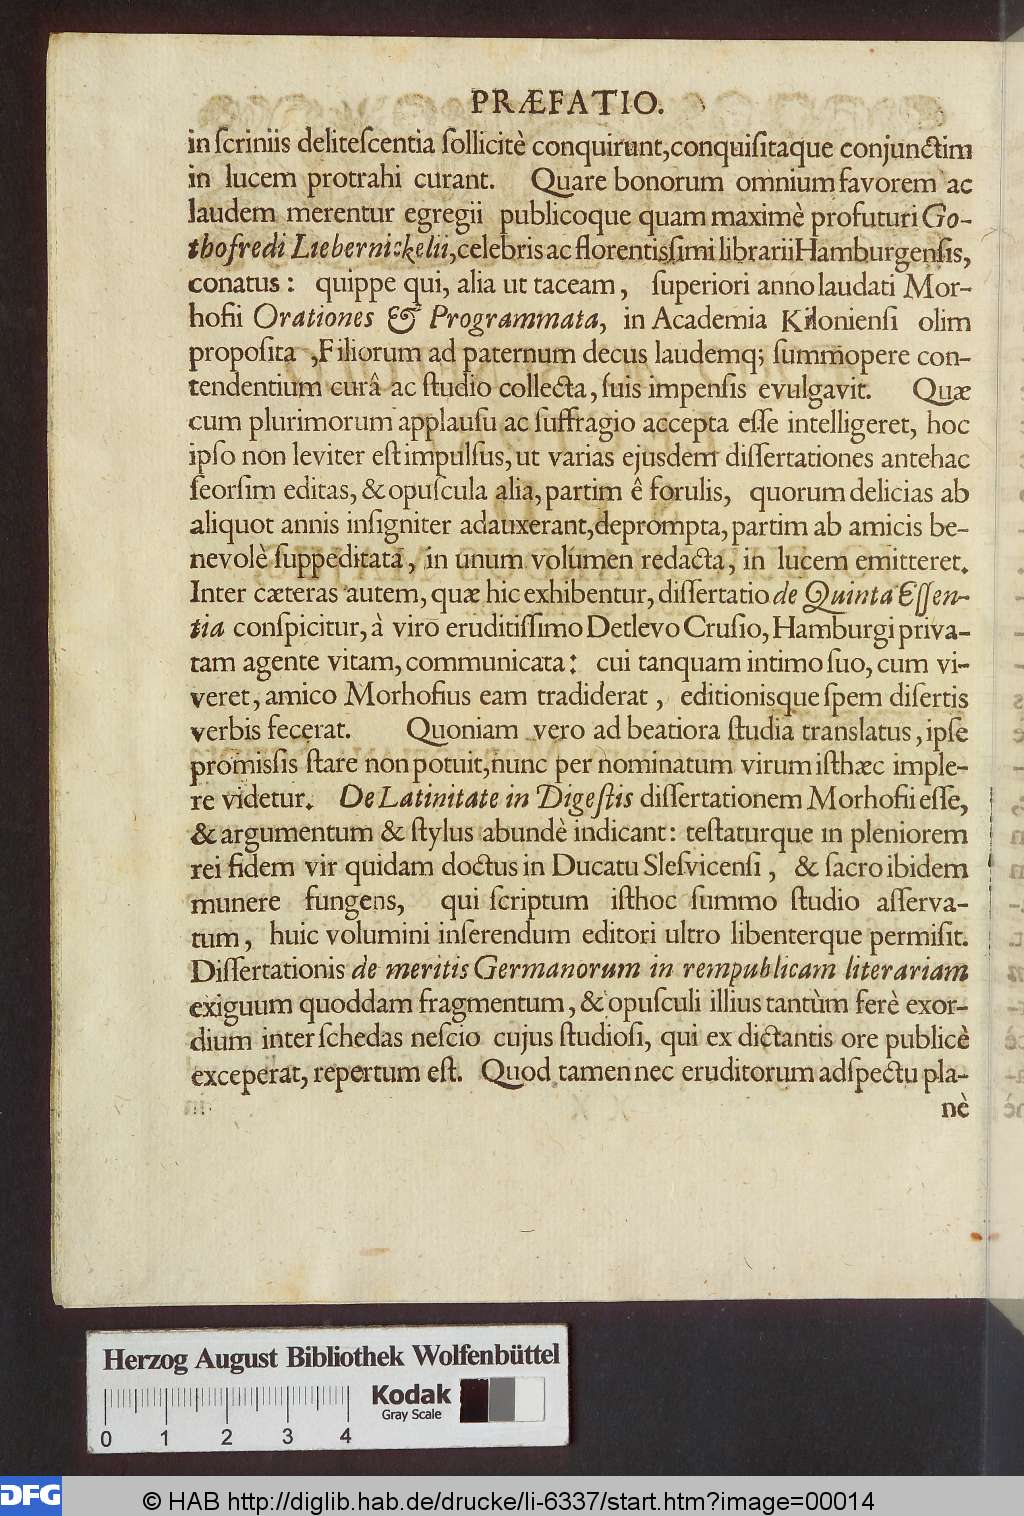 PRÆFATIO.
in ſcriniis deliteſcentia ſollicitè conquirunt,conquiſitaque conjunctim
in lucem protrahi curant. Quare bonorum omnium favorem ac
laudem merentur egregii publicoque quam maximè profuturi Go-
thofredi Liebernickelii,celebris ac florentiſſimi librarii Hamburgenſis,
conatus: quippe qui, alia ut taceam, ſuperiori anno laudati Mor-
hofii Orationes & Programmata, in Academia Kilonienſi olim
propoſita ,Filiorum ad paternum decus laudemq; ſummopere con-
tendentium curâ ac ſtudio collecta, ſuis impenſis evulgavit. Quæ
cum plurimorum applauſu ac ſuffragio accepta eſſe intelligeret, hoc
ipſo non leviter eſt impulſus, ut varias ejusdem diſſertationes antehac
ſeorſim editas, & opuſcula alia, partim ê forulis, quorum delicias ab
aliquot annis inſigniter adauxerant,deprompta, partim ab amicis be-
nevolè ſuppeditata, in unum volumen redacta, in lucem emitteret.
Inter cæteras autem, quæ hic exhibentur, diſſertatio de Quinta Eſſen-
tia conſpicitur, à viro eruditiſſimo Detlevo Cruſio, Hamburgi priva-
tam agente vitam, communicata: cui tanquam intimo ſuo, cum vi-
veret, amico Morhofius eam tradiderat, editionisque ſpem diſertis
verbis fecerat. Quoniam vero ad beatiora ſtudia translatus, ipſe
promiſſis ſtare non potuit,nunc per nominatum virum iſthæc imple-
re videtur. De Latinitate in Digeſtis diſſertationem Morhofii eſſe,
& argumentum & ſtylus abundè indicant: teſtaturque in pleniorem
rei fidem vir quidam doctus in Ducatu Sleſvicenſi, & ſacro ibidem
munere fungens, qui ſcriptum iſthoc ſummo ſtudio aſſerva-
tum, huic volumini inſerendum editori ultro libenterque permiſit.
Diſſertationis de meritis Germanorum in rempublicam literariam
exiguum quoddam fragmentum, & opuſculi illius tantùm ferè exor-
dium inter ſchedas neſcio cujus ſtudioſi, qui ex dictantis ore publicè
exceperat, repertum eſt. Quod tamen nec eruditorum adſpectu pla-
nè
Herzog August Bibliothek Wolfenbüttel
Kodak
Gray Scale
0 1 2 3 4
DFG
© HAB http://diglib.hab.de/drucke/li-6337/start.htm?image=00014